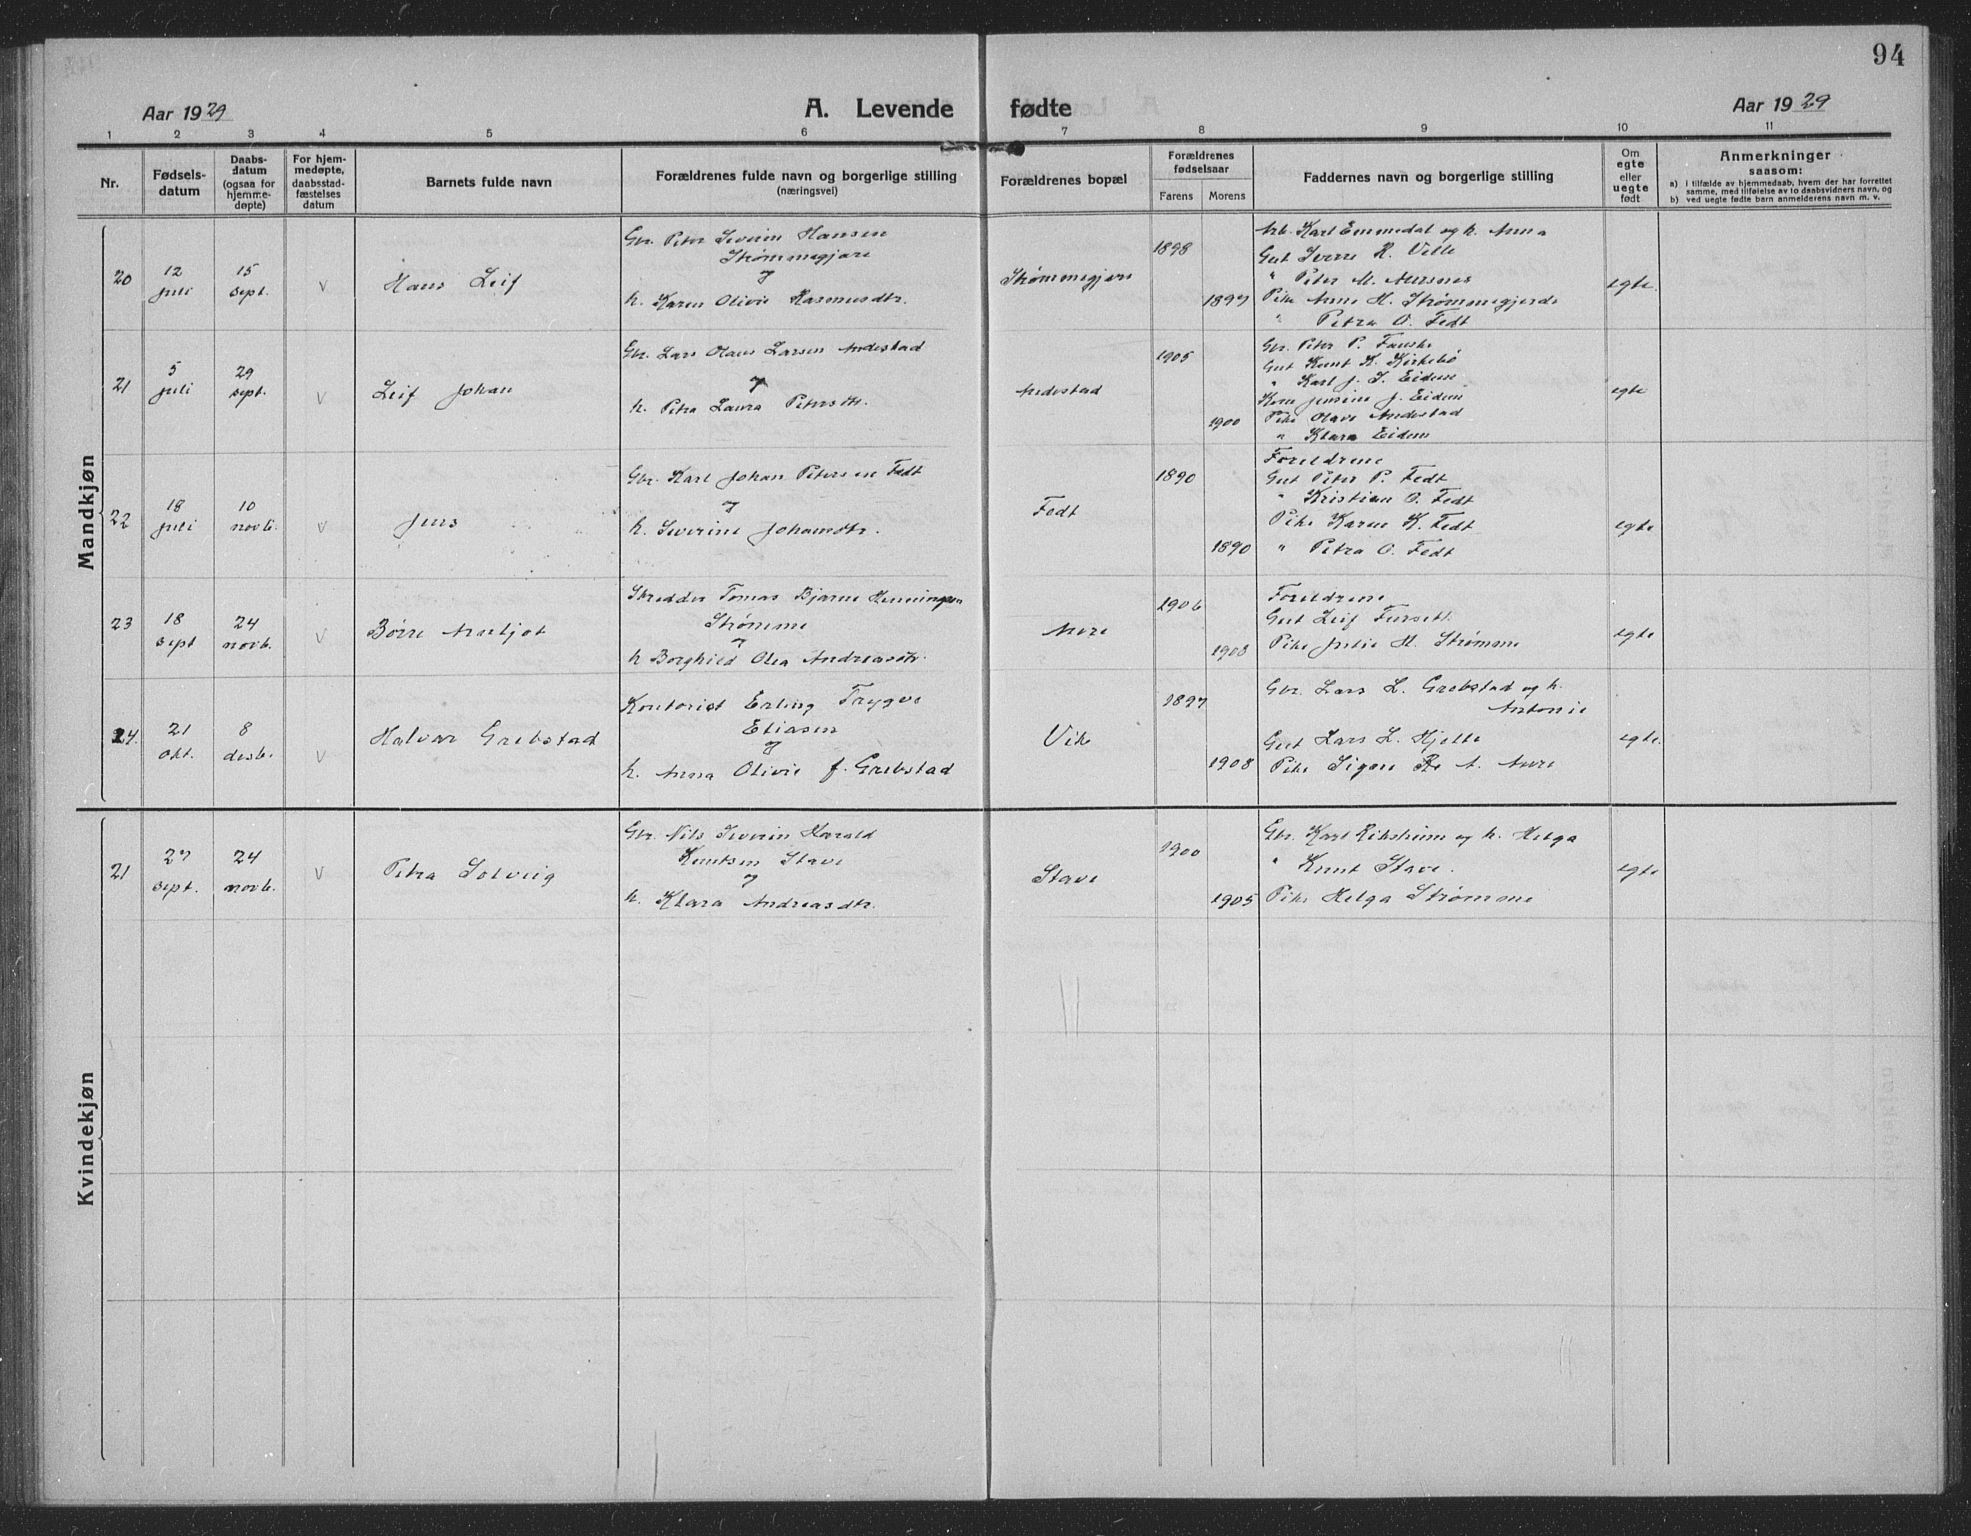 94
Aar 1929
A. Levende fødte
Aar 1929
1 2 3 4 5 6 7 8 9 10 11
Nr.
Fødsels-
datum
Daabs-
datum
(ogsaa for
hjemme-
døpte)
For hjem-
medøpte,
daabsstad-
fæstelses
datum
Barnets fulde navn
Forældrenes fulde navn og borgerlige stilling
(næringsvei)
Forældrenes bopæl
Forældrenes
fødselsaar
Farens Morens
Faddernes navn og borgerlige stilling
Om
egte
eller
uegte
født
Anmerkninger
saasom:
a) i tilfælde av hjemmedaab, hvem der har forrettet
samme, med tilføielse av to daabsvidners navn, og
b) ved uegte fødte barn anmelderens navn m. v.
Mandkjøn
20
12
juli
15
sept.
v
Hans Leif
Gbr. Peter Severin Hansen
Strømmegjære
og
h. Karen Olivie Rasmusdtr.
Strømmegjære
1898
1897
Arb. Karl Emmedal og h. Anna
Gut Sverre R. Velle
" Peter M. Aursnes
Pike Anne H. Strømmegjerde
" Petra O. Fedt
egte.
21
5
juli
29
sept.
v
Leif Johan
Gbr. Lars Olaus Larsen Andestad
og
h. Petra Laura Petersdtr.
Andestad
1905
1900
Gbr. Peter P. Fauske
Gut Knut K. Kirkebø
" Karl J. I. Eidem
Kone Jensine J. Eidem
Pike Olave Andestad
" Klara Eidem
egte
22
18
juli
10
novb.
v
Jens
Gbr. Karl Johan Petersen Fedt
og
h. Severine Johansdtr.
Fedt
1890
1890
Foreldrene
Gut Peter P. Fedt
" Kristian O. Fedt
Pike Karen K. Fedt
" Petra O. Fedt
egte
23
18
sept
24
novb.
v
Børre Arnljot
Skredder Tomas Bjarne Henningsen
Strømme
og
h Borghild Olea Andreasdtr.
Aure
1906
1908
Foreldrene
Gut Leif Fursett
Pike Julie H. Strømme
egte
24.
21
okt.
8
desb.
v
Halvar Grebstad
Kontorist Erling Trygve
Eliasen
og
h. Anna Olivie f. Grebstad
Vik
1897
1908
Gbr. Lars L. Grebstad og h.
Antonie
Gut Lars L. Hjelle
Pike Signe A. Aure
egte.
Kvindekjøn
21
27
sept.
24
novb.
v
Petra Solveig
Gbr. Nils Severin Harald
Knutsen Stave
og
h. Klara Andreasdtr.
Stave
1900
1905
Gbr. Karl Riksheim og h. Helga
" Knut Stave.
Pike Helga Strømme
egte